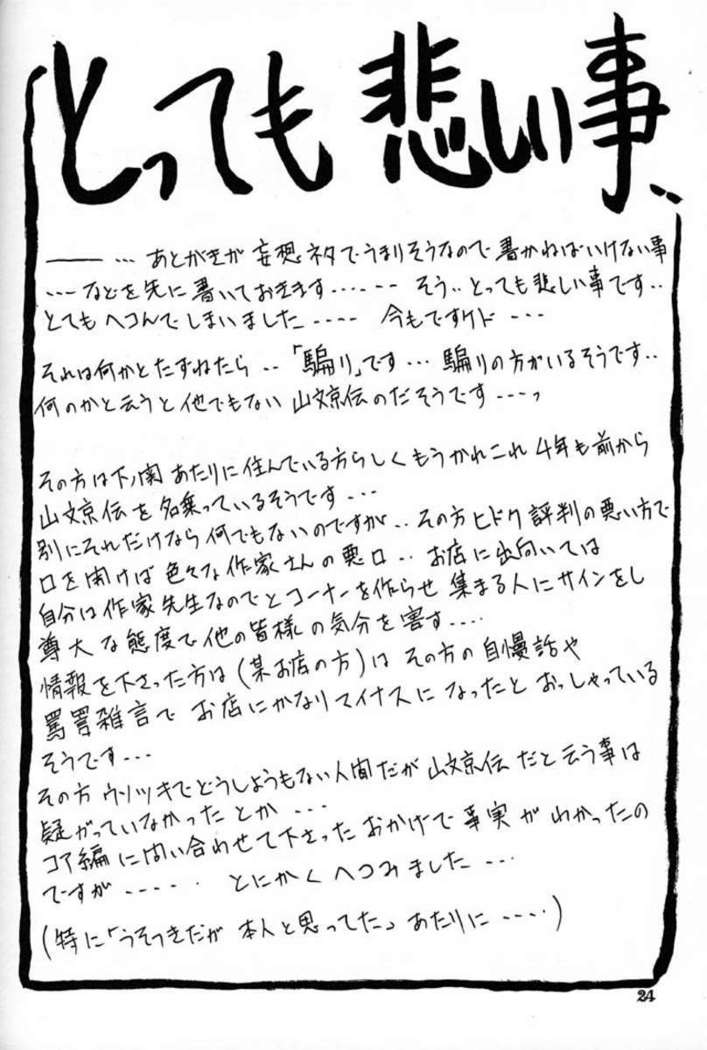 とっても悲しい事..
――― … あとがきが妄想ネタでうまりそうなので書かねばいけない事
--- などを先に書いておきます ---… -- そう.. とっても悲しい事です..
とてもヘコんでしまいました ---- 今もですケド ---
それは何かとたずねたら .. 「騙り」です… 騙りの方がいるそうです..
何のかと云うと他でもない 山文京伝のだそうです ---っ
その方は下ノ関あたりに住んでいる方らしくもうかれこれ4年も前から
山文京伝を名乗っているそうです ---
別にそれだけなら何でもないのですが.. その方ヒドク評判の悪い方で
口を開けば色々な作家さんの悪口 .. お店に出向いては
自分は作家先生なのでとコーナーを作らせ集まる人にサインをし
尊大な態度で他の皆様の気分を害す....
情報を下さった方は(某お店の方)はその方の自慢話や
罵詈雑言でお店にかなりマイナスになったとおっしゃっている
そうです…
その方ウソツキでどうしようもない人間だが山文京伝だと云う事は
疑がっていなかったとか ---
コア編に問い合わせて下さったおかげで事実がわかったの
ですが ----- . とにかくヘコみました ---
(特に「うそつきだが本人と思ってた」あたりに ----)
24